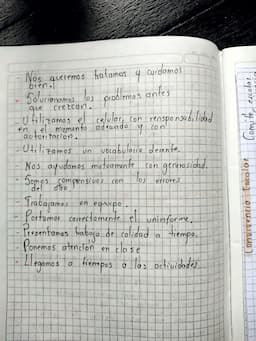 - Nos queremos tratamos y cuidamos
bien.
- Solucionamos los problemas antes
que crezcan.
- Utilizamos el celular con rensponsabilidad
en el momento adecuado y con
autoritacion.
- Utilizamos un vocabulario decente.
- Nos ayudamos mutuamente con generosidad.
- Somos compensivos con los errores
del otro.
- Trabajamos en equipo.
- Portamos correctamente el uninforme.
- Presentamos trabajo de calidad a tiempo.
- Ponemos atención en clase
- Llegamos a tiempos a las actividades.
Convivencia Escolar
Comité escolar